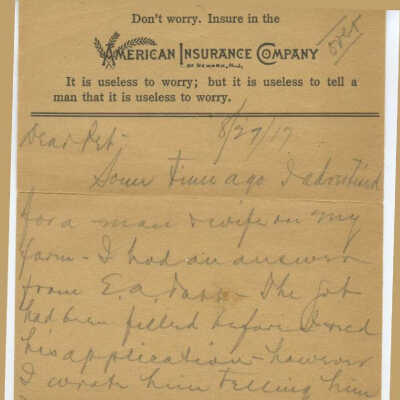 Don't worry. Insure in the
AMERICAN INSURANCE COMPANY
OF NEWARK, N.J.
over
It is useless to worry; but it is useless to tell a
man that it is useless to worry.
8/27/17
Dear Pet;
Some time ago I advertised
for a man & wife on my
farm - I had an answer
from E. A. - The job
had been filled before I rec'd
his application - however
I wrote him telling him